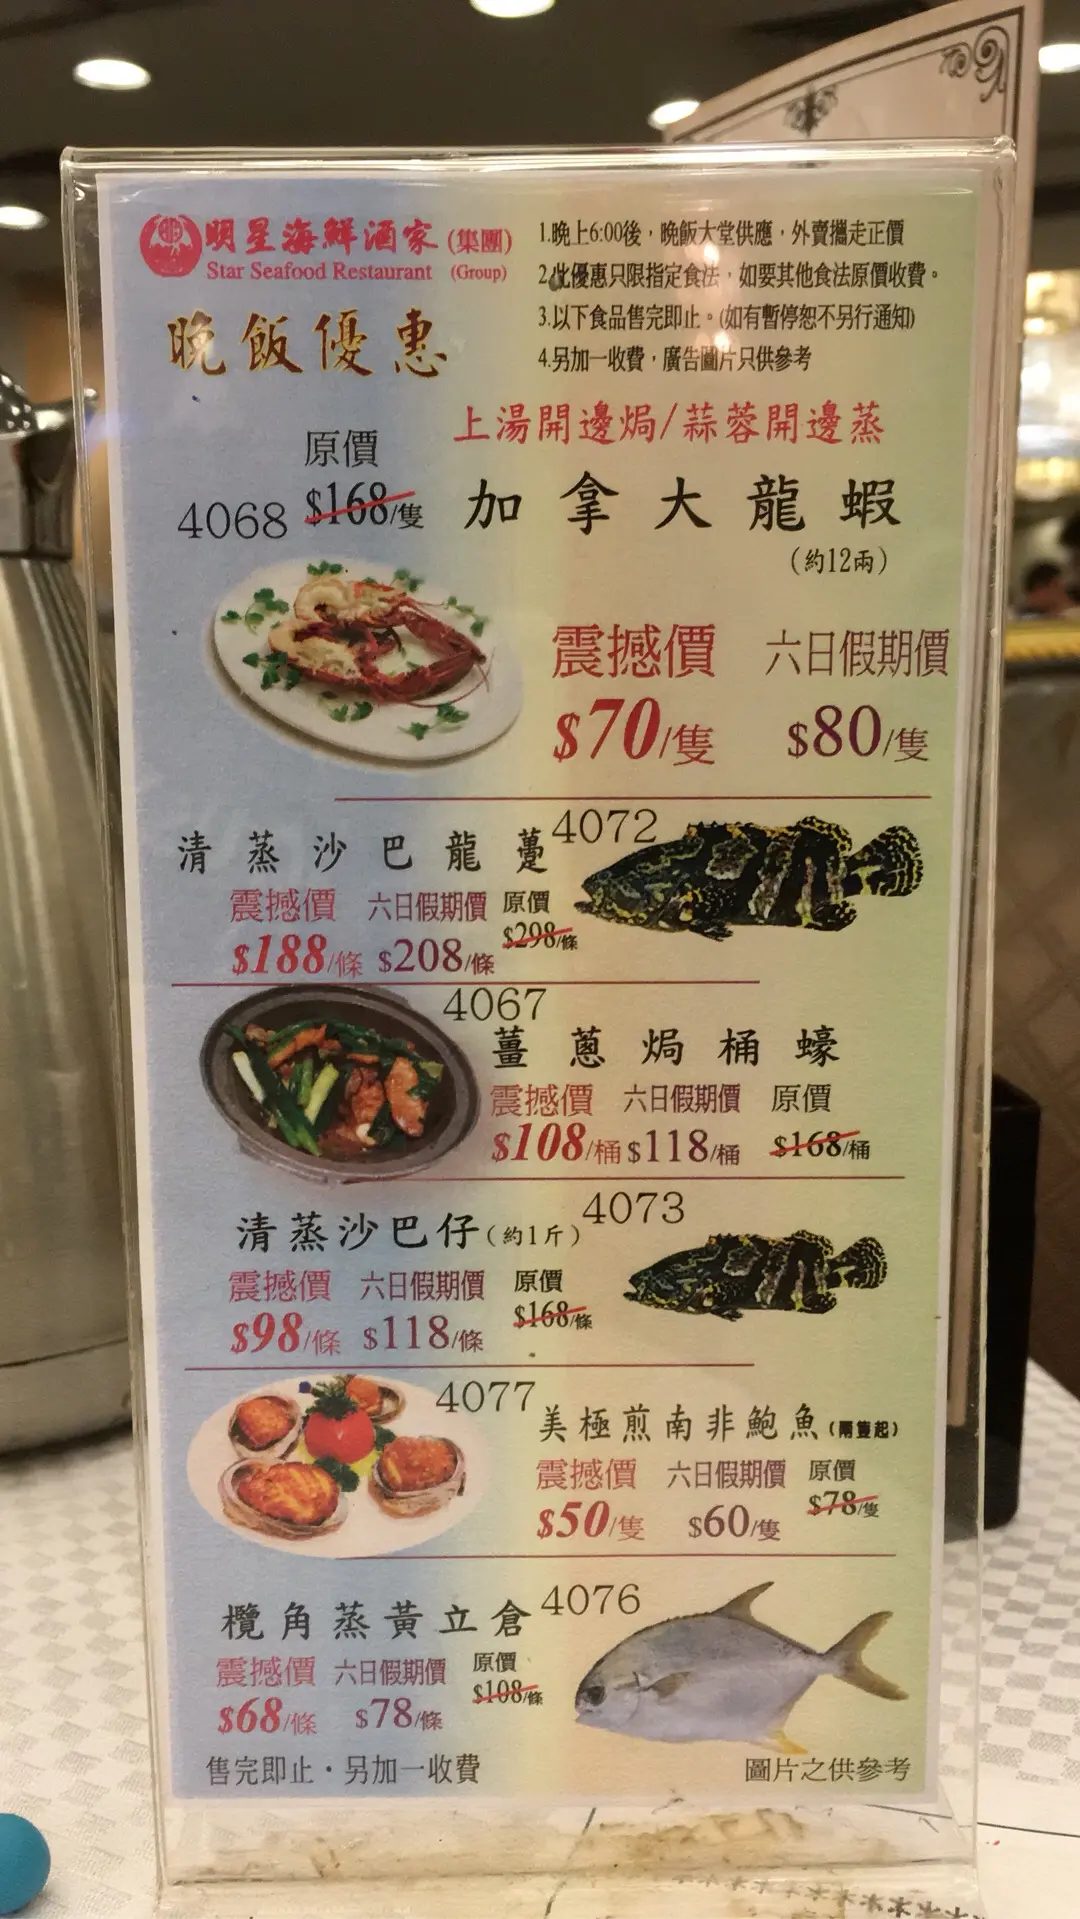 明星海鮮酒家 (集團)
Star Seafood Restaurant (Group)
晚飯優惠
1.晚上6:00後，晚飯大堂供應，外賣攜走正價
2.此優惠只限指定食法，如要其他食法原價收費。
3.以下食品售完即止。(如有暫停恕不另行通知)
4.另加一收費，廣告圖片只供參考
上湯開邊焗/蒜蓉開邊蒸
原價
4068 $168/隻 加拿大龍蝦
(約12兩)
震撼價 六日假期價
$70/隻 $80/隻
4072
清蒸沙巴龍躉
震撼價 六日假期價 原價
$188/條 $208/條 $298/條
4067
薑蔥焗桶蠔
震撼價 六日假期價 原價
$108/桶 $118/桶 $168/桶
4073
清蒸沙巴仔(約1斤)
震撼價 六日假期價 原價
$98/條 $118/條 $168/條
4077
美極煎南非鮑魚(兩隻起)
震撼價 六日假期價 原價
$50/隻 $60/隻 $78/隻
4076
欖角蒸黃立倉
震撼價 六日假期價 原價
$68/條 $78/條 $108/條
售完即止・另加一收費
圖片之供參考